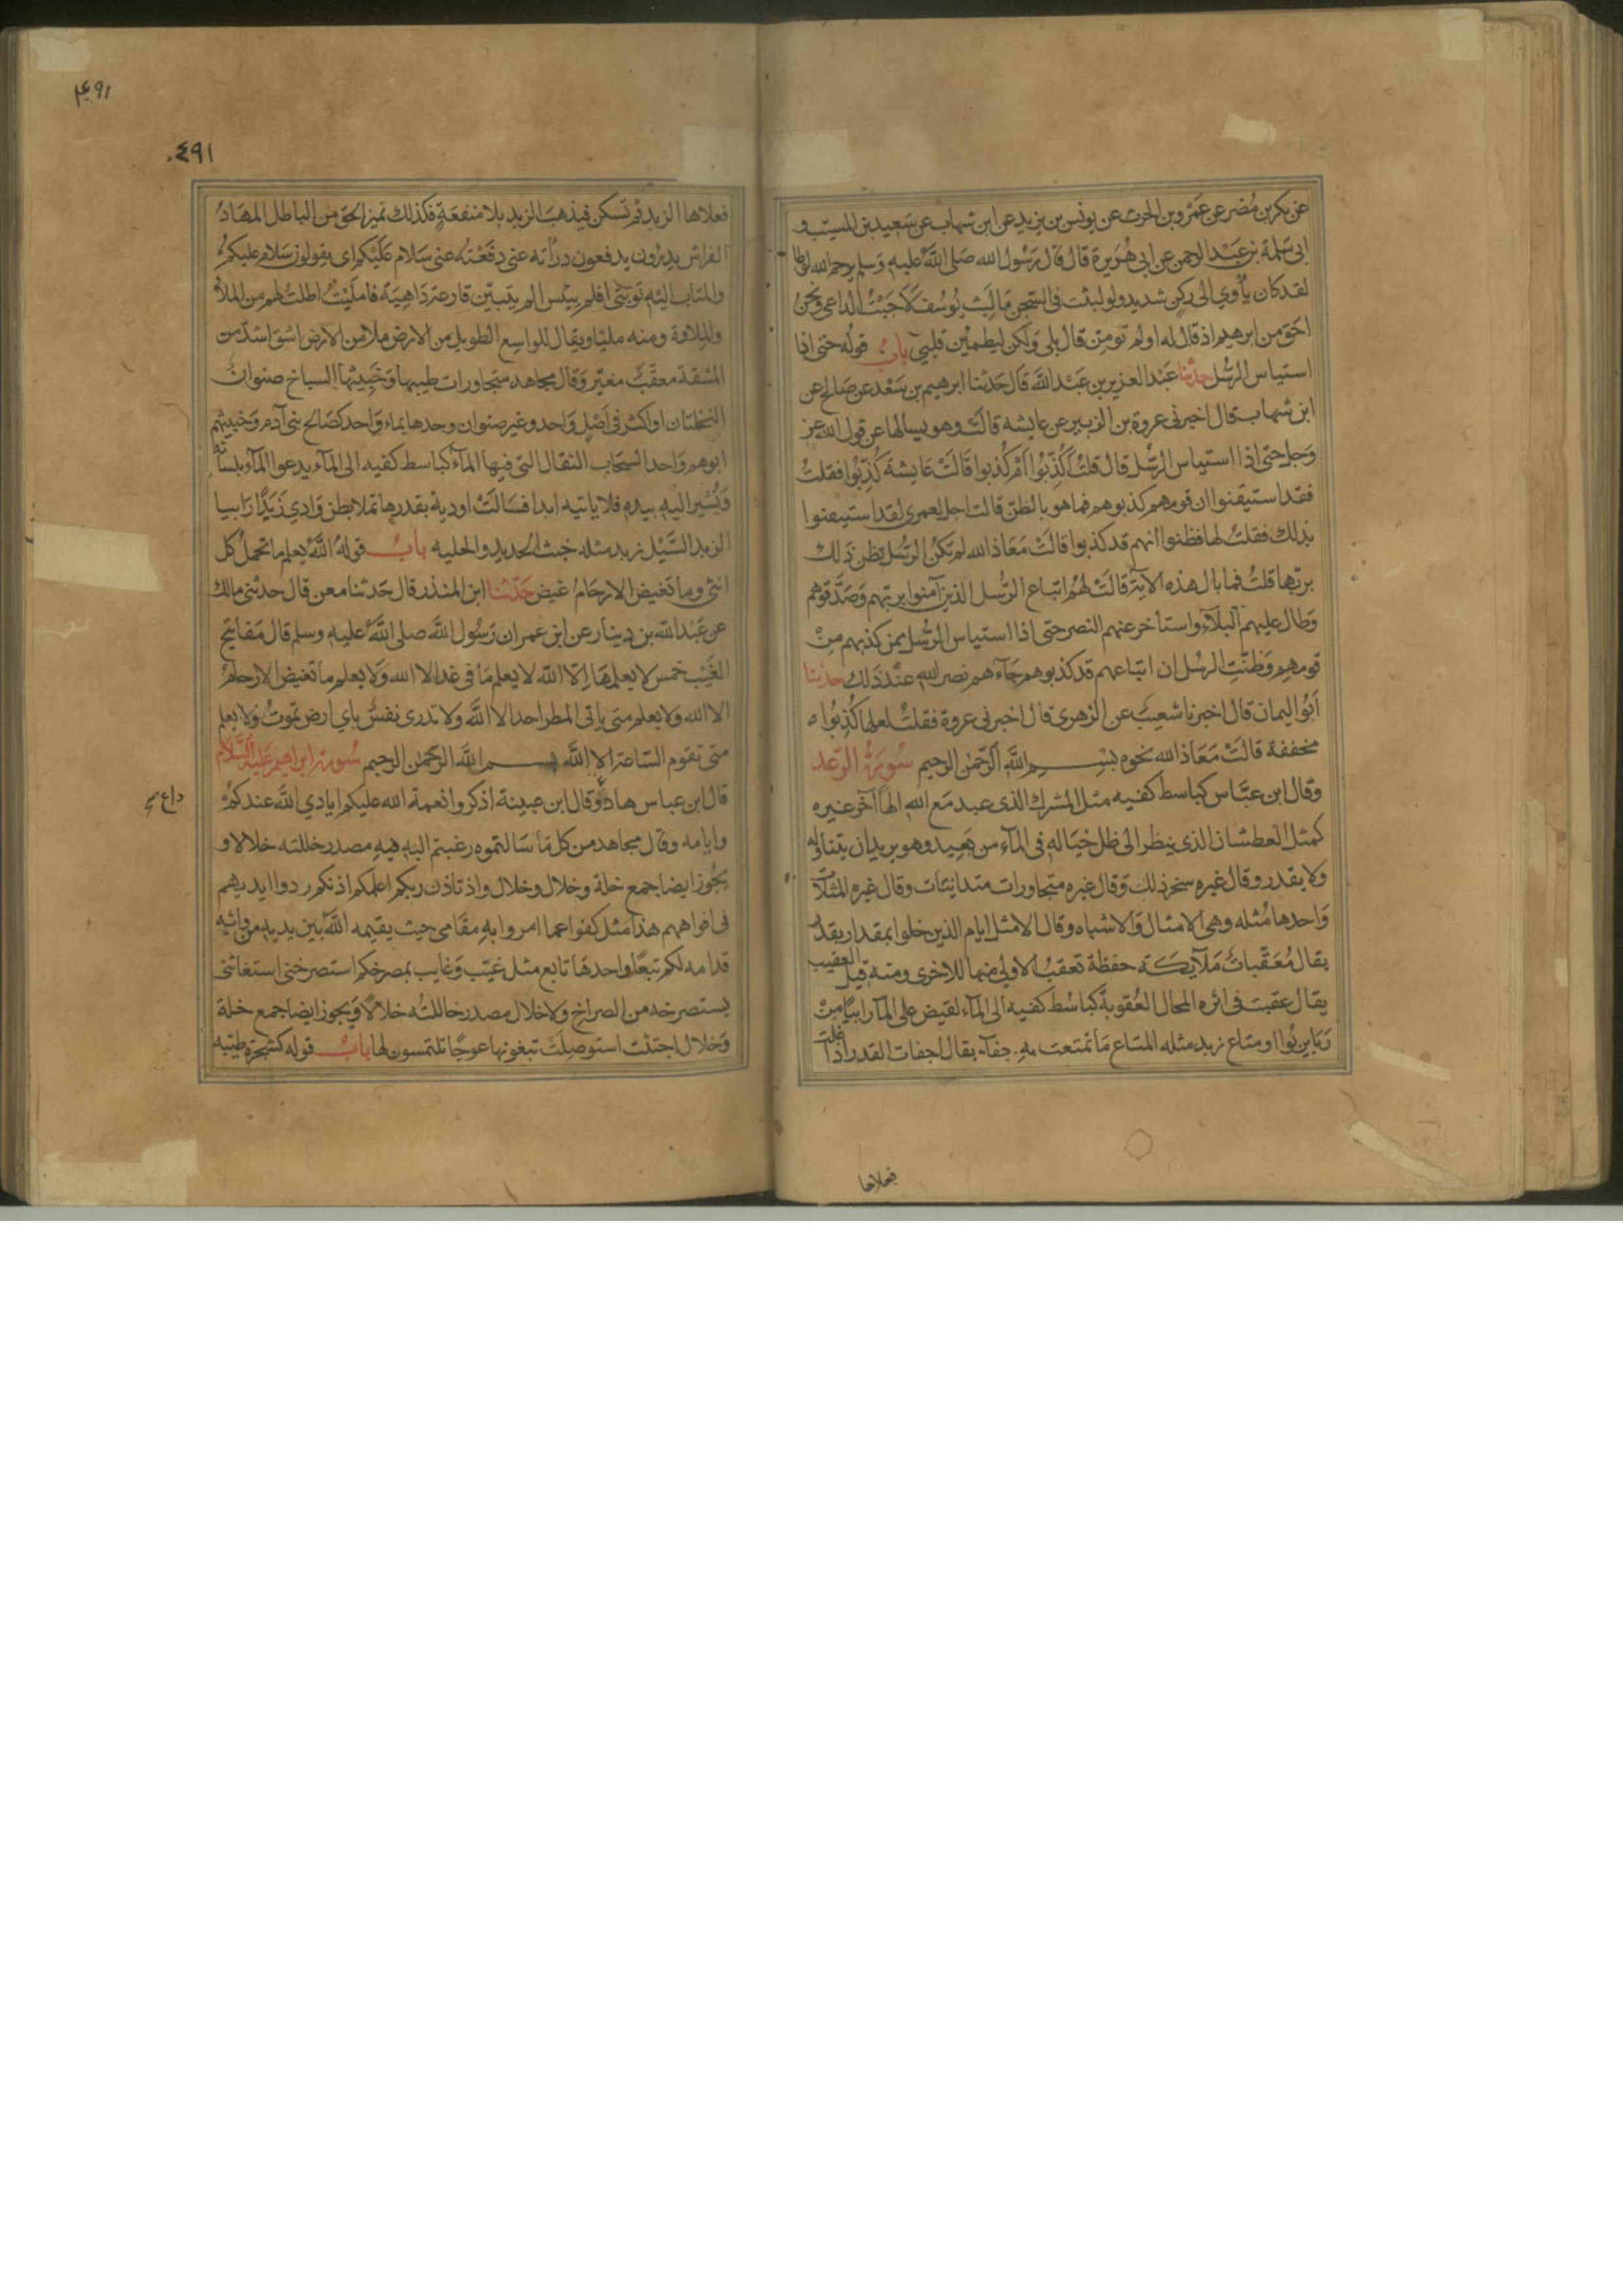 عن بكر بن مضر عن عمرو بن الحرث عن يونس بن يزيد عن ابن شهاب عن سعيد بن المسيب و
ابي سلمة بن عبد الرحمن عن ابي هريرة قال قال رسول الله صلى الله عليه وسلم يرحم الله لوطا
لقد كان يأوي الى ركن شديد ولو لبثت في السجن ما لبث يوسف لاجبت الداعي ونحن
احق من ابرهيم اذ قال له اولم تومن قال بلى ولكن ليطمئن قلبي باب قوله حتى اذا
استياس الرسل حدثنا عبد العزيز بن عبد الله قال حدثنا ابرهيم بن سعد عن صالح عن
ابن شهاب قال اخبرني عروة بن الزبير عن عايشه قالت وهو يسالها عن قول الله عز
وجل حتى اذا استياس الرسل قال قلت اكذبوا ام كذبوا قالت عايشة كذبوا فقلت
فقد استيقنوا ان قومهم كذبوهم فما هو بالظن قالت اجل لعمري لقد استيقنوا
بذلك فقلت لها فظنوا انهم قد كذبوا قالت معاذ الله لم تكن الرسل تظن ذلك
بربها قلت فما بال هذه الاية قالت هم اتباع الرسل الذين آمنوا بربهم وصدقوهم
وطال عليهم البلاء واستاخر عنهم النصر حتى اذا استياس الرسل بمن كذبهم من
قومهم وظنت الرسل ان اتباعهم قد كذبوهم جاءهم نصر الله عند ذلك حدثنا
ابو اليمان قال اخبرنا شعيب عن الزهري قال اخبرني عروة فقلت لعلها كذبوا
مخففة قالت معاذ الله نحوه بسم الله الرحمن الرحيم سورة الرعد
وقال ابن عباس كباسط كفيه مثل المشرك الذي عبد مع الله الها آخر غيره
كمثل العطشان الذي ينظر الى ظل خياله في الماء من بعيد وهو يريد ان يتناوله
ولا يقدر وقال غيره سخر ذلك وقال غيره متجاورات متدانيات وقال غيره المثلات
واحدها مثله وهي الامثال والاشباه وقال الا مثل ايام الذين خلوا بمقدار بقدر
يقال معقبات ملآيكة حفظة تعقب الاولى منها للاخرى ومنه قيل العقيب
يقال عقبت في اثره المحال العقوبة كباسط كفيه الى الماء لقيض على الما رابيا من
ربا يربوا او متاع زبد مثله المتاع ما تمتعت به جفاء يقال اجفات القدر اذا غلت
فعلاها
٤٩١
٤٩١
فعلاها الزبد ثم تسكن فيذهب الزبد بلا منفعة فكذلك تميز الحق من الباطل المهاد
الفراش يدرون يدفعون دراته عني دفعته عني سلام عليكم اي يقولون سلام عليكم
والمتاب اليه توبتي افلم ييئس الم يتبين قارعة داهية فامليت اطلت لهم من الملأ
والملاوة ومنه مليا ويقال للواسع الطويل من الارض ملا من الارض اشق اشد من
المشقة معقب مغير وقال مجاهد متجاورات طيبها وخبيثها السباخ صنوان
النخلتان او اكثر في اصل واحد وغير صنوان وحدها بماء واحد كصالح بني آدم وخبيثهم
ابوهم واحد السحاب الثقال التي فيها الماء كباسط كفيه الى الماء يدعوا الماء بلسانه
ويشير اليه بيده فلا ياتيه ابدا فسالت اودية بقدرها تملا بطن وادي زبدا رابيا
الزبد السيل زبد مثله خبث الحديد والحليه باب قوله الله يعلم ما تحمل كل
انثى وما تغيض الارحام غيض حدثنا ابن المنذر قال حدثنا معن قال حدثني مالك
عن عبد الله بن دينار عن ابن عمر ان رسول الله صلى الله عليه وسلم قال مفاتيح
الغيب خمس لا يعلمها الا الله لا يعلم ما في غد الا الله ولا يعلم ما تغيض الارحام
الا الله ولا يعلم متى ياتي المطر احد الا الله ولا تدري نفس باي ارض تموت ولا يعلم
متى تقوم الساعة الا الله بسم الله الرحمن الرحيم سورة ابراهيم عليه السلام
قال ابن عباس هاد وقال ابن عيينة اذكروا نعمة الله عليكم ايادي الله عندكم
داع
وايامه وقال مجاهد من كل ما سالتموه رغبتم اليه فيه مصدر خللته خلالا و
يجوز ايضا جمع خلة وخلال وخلال واذ تاذن ربكم اعلمكم اذنكم ردوا ايديهم
في افواههم هذا مثل كفوا عما امروا به مقامي حيث يقيمه الله بين يديه من ورائه
قدامه لكم تبعا واحدها تابع مثل غيب وغايب بمصرخكم استصرخني استغاثني
يستصرخه من الصراخ ولا خلال مصدر خاللته خلالا ويجوز ايضا جمع خلة
وخلال اجتثت استوصلت تبغونها عوجا تلتمسون لها باب قوله كشجرة طيبه